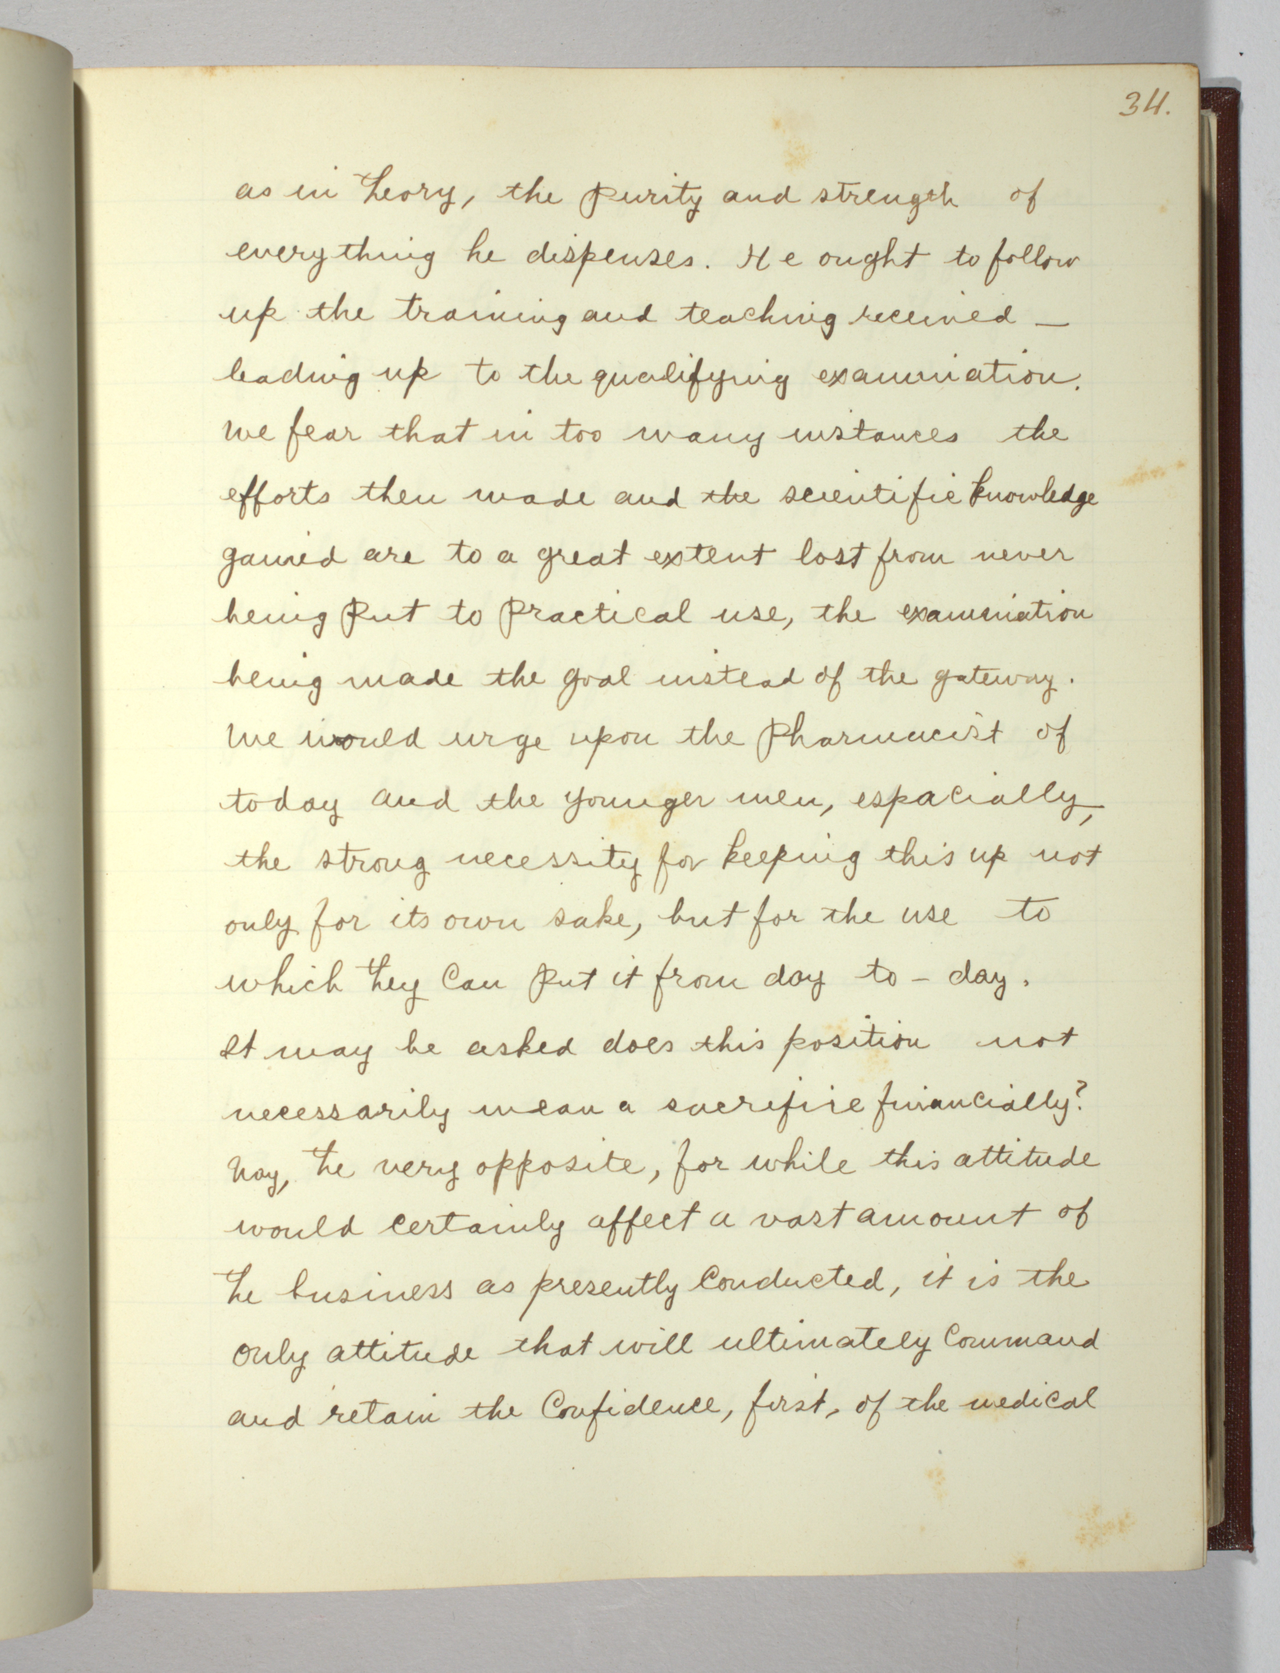 34.
as in theory, the purity and strength of
everything he dispenses. He ought to follow
up the training and teaching received —
leading up to the qualifying examination.
We fear that in too many instances the
efforts then made and the scientific knowledge
gained are to a great extent lost from never
being put to practical use, the examination
being made the goal instead of the gateway.
We would urge upon the Pharmacist of
today and the younger men, espacially,
the strong necessity for keeping this up not
only for its own sake, but for the use to
which they can put it from day to - day.
It may be asked does this position not
necessarily mean a sacrifice financially?
Nay, the very opposite, for while this attitude
would certainly affect a vast amount of
the business as presently conducted, it is the
only attitude that will ultimately command
and retain the confidence, first, of the medical